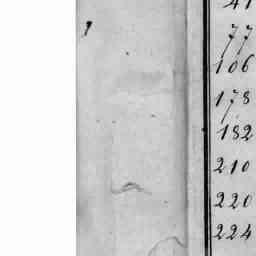 41
77
106
178
182
210
220
224